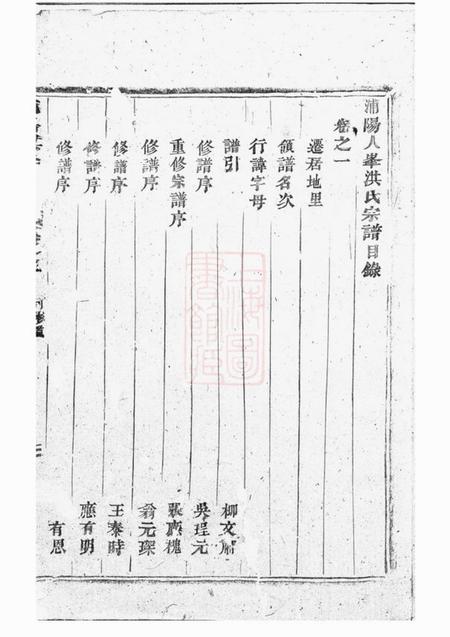 浦陽人峯洪氏宗譜目錄
卷之一
遷居地里
領譜名次
行諱字母
譜引 柳文
修譜序 吳珵元
重修宗譜序 應槐
修譜序 翁元琛
修譜序 王秦時
修譜序 應有明
修譜序 有恩
上海圖書館